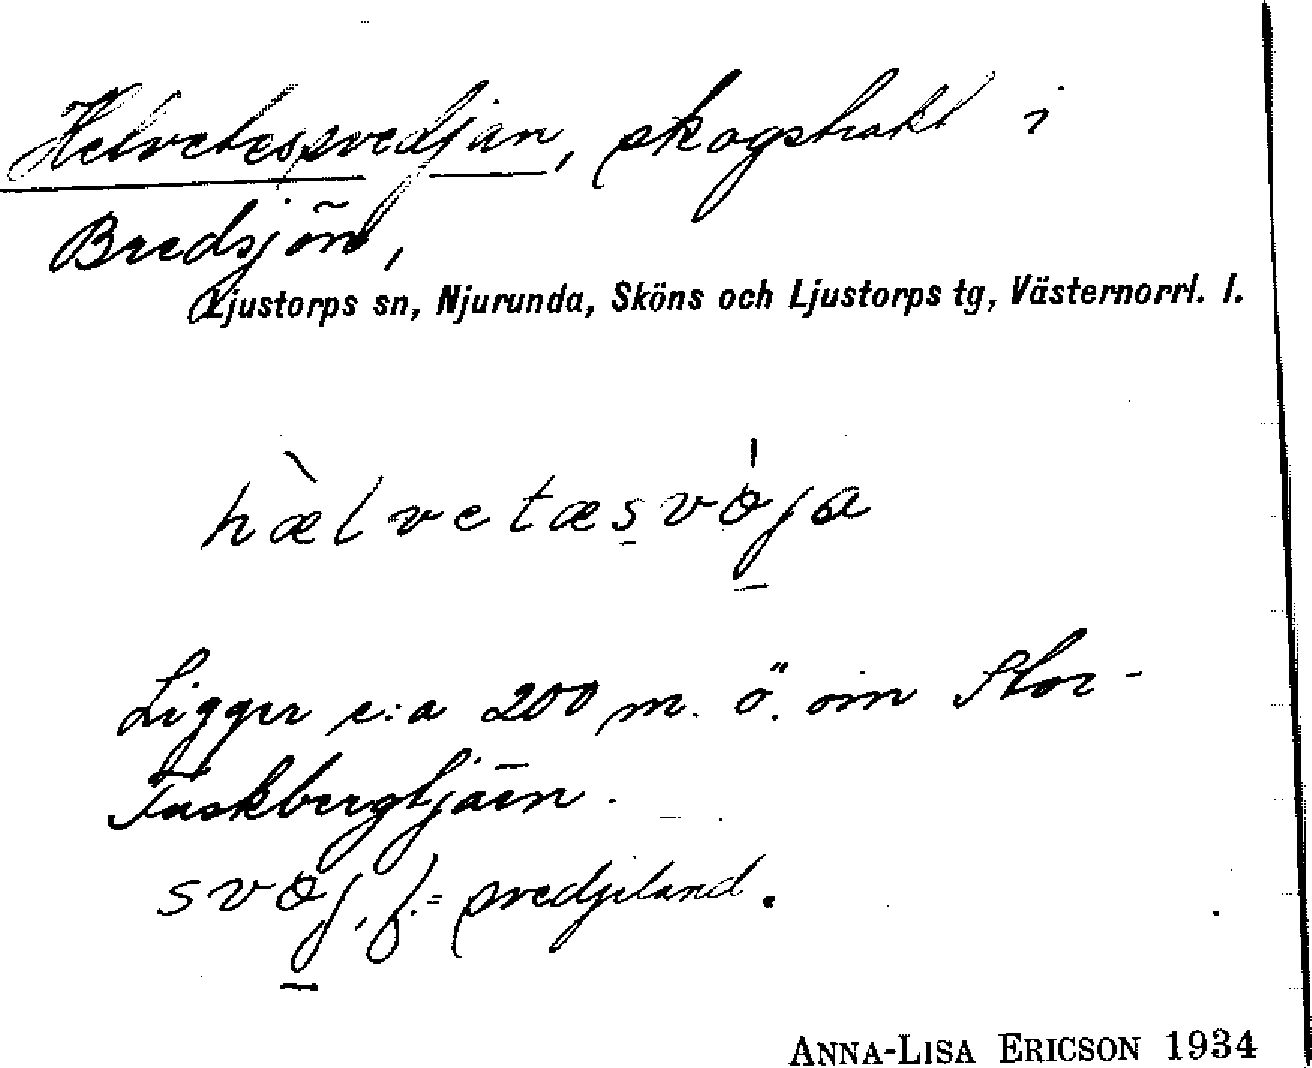 Helvetessvedjan, skogstrakt i
Bredsjön,
Ljustorps sn, Njurunda, Sköns och Ljustorps tg, Västernorrl. l.
hælvetæsvøja
Ligger c:a 200 m. ö. om Stor-
Fuskbergtjärn.
svøj, f. = svedjeland.
ANNA-LISA ERICSON 1934